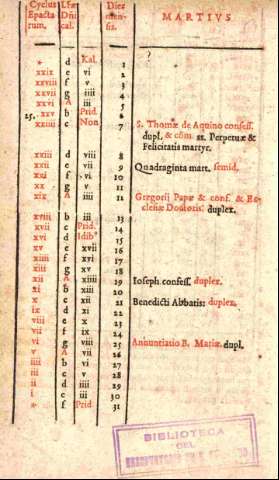 Cyclus Lfæ Dies MARTIVS.
Epacta Dñi men-
rum. cal. sis.
* d Kal. 1
xxix e vi 2
xxviii f v 3
xxvii g iiii 4
xxvi A iii 5
25. xxv b Prid. 6
xxiiii c Non 7 S. Thomæ de Aquino confess.
dupl. & cõm. ss. Perpetuæ &
Felicitatis martyr.
xxiii d viii 8
xxii e vii 9 Quadraginta mart. semid.
xxi f vi 10
xx g v 11
xix A iiii 12 Gregorij Papæ & conf. & Ec-
clesiæ Doctoris. duplex.
xviii b iii 13
xvii c Prid. 14
xvi d Idib 15
xv e xvii 16
xiiii f xvi 17
xiii g xv 18
xii A xiiii 19 Ioseph confess. duplex.
xi b xiii 20
x c xii 21 Benedicti Abbatis: duplex.
ix d xi 22
viii e x 23
vii f ix 24
vi g viii 25 Annuntiatio B. Mariæ. dupl.
v A vii 26
iiii b vi 27
iii c v 28
ii d iiii 29
i e iii 30
* f Prid 31
BIBLIOTECA
DEL